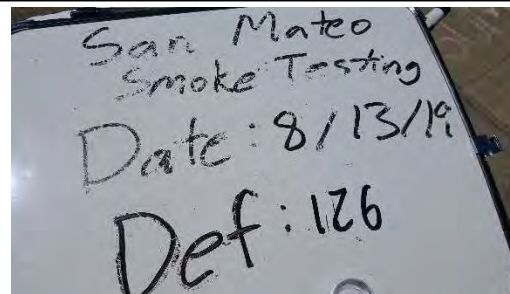 San Mateo
Smoke Testing
Date: 8/13/19
Def: 126